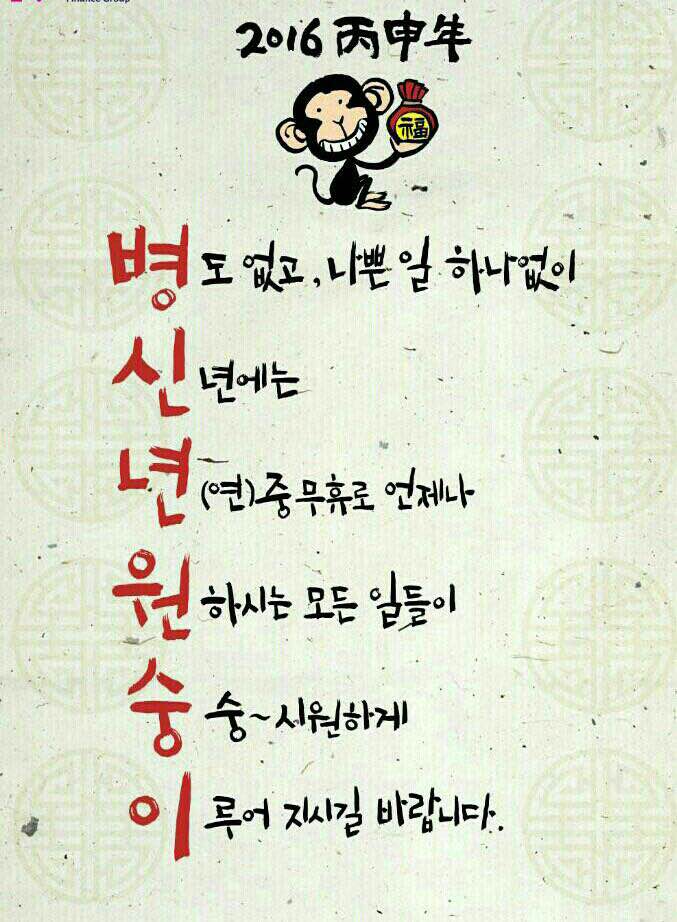 Finance Group
2016 丙申年
福
병도 없고, 나쁜 일 하나없이
신년에는
년(연)중무휴로 언제나
원하시는 모든 일들이
숭숭~시원하게
이루어 지시길 바랍니다.